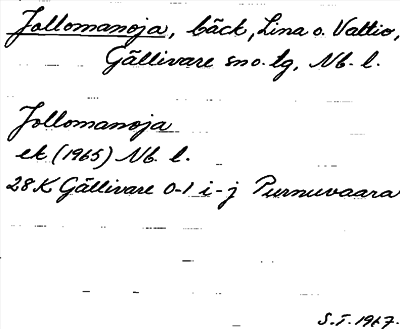 Jollomanoja, bäck, Lina o. Valtio,
Gällivare sn o. lg, Nb. l.
Jollomanoja
ek (1965) Nb. l.
28K Gällivare 0-1 i-j Purnuvaara
S.T. 1967.